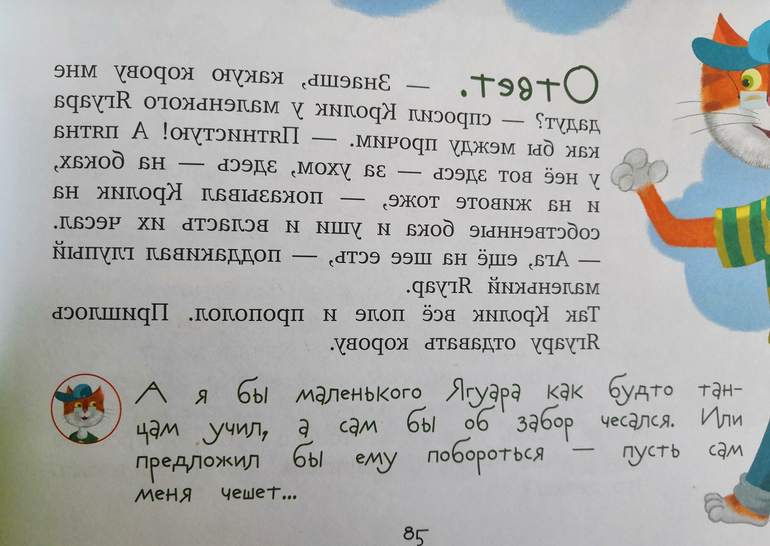 Ответ. — Знаешь, какую корову мне
дадут? — спросил Кролик у маленького Ягуара
как бы между прочим. — Пятнистую! А пятна
у неё вот здесь — за ухом, здесь — на боках,
и на животе тоже, — показывал Кролик на
собственные бока и уши и всласть их чесал.
— Ага, ещё на шее есть, — поддакивал глупый
маленький Ягуар.
Так Кролик всё поле и прополол. Пришлось
Ягуару отдавать корову.
А я бы маленького Ягуара как будто тан-
цам учил, а сам бы об забор чесался. Или
предложил бы ему побороться — пусть сам
меня чешет...
85